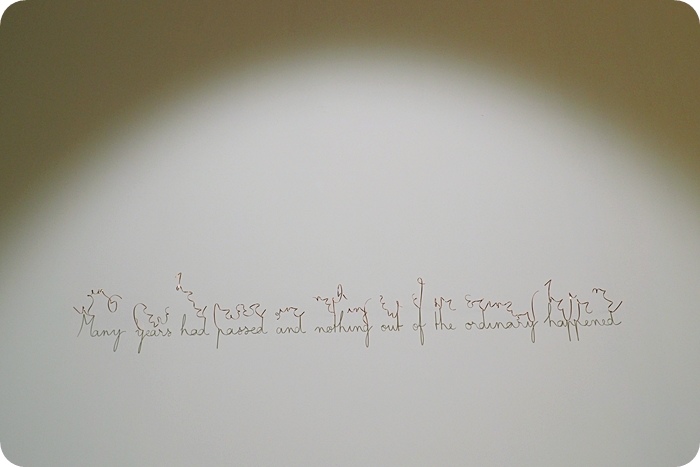 Many years had passed and nothing out of the ordinary happened